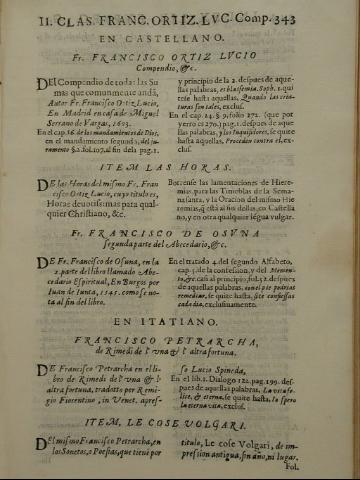 II. CLAS. FRANC. ORTIZ. LVC. Comp. 343
EN CASTELLANO.
Fr. FRANCISCO ORTIZ LVCIO
Compendio, &c.
DEl Compendio de todas las Su
mas que comunmente andā,
Autor Fr. Francisco Ortiz Lucio,
En Madrid en casa de Miguel
Serrano de Vargas, 1603.
En el cap. 16. de los mandamientos de Dios,
en el mandamiento segundo, del ju-
ramento §.2. fol. 107. al fin de la pag. 1.
y principio de la 2. despues de aque-
llas palabras, es blasfemia. Soph. 1. qui
tese hasta aquellas, Quando las cria-
turas son tales, exclus.
En el cap. 24. §. 9. folio 272. (que por
yerro es 270.) pag. 1. despues de aque-
llas palabras, y los Inquisidores, se quite
hasta aquellas, Proceder contra el, ex-
clus.
ITEM LAS HORAS.
DE las Horas del mismo Fr. Fran
cisco Ortiz Lucio, cuyo titulo es,
Horas deuotissimas para qual-
quier Christiano, &c.
Borrense las lamentaciones de Hiere-
mias, para las Tinieblas de la Sema-
na santa, y la Oracion del mismo Hie
remias, q̄ està al fin dellas, en Castella
no, y en otra qualquier lēgua vulgar.
Fr. FRANCISCO DE OSVNA
segunda parte del Abecedario, &c.
DE Fr. Francisco de Osuna, en la
2. parte del libro llamado Abe-
cedario Espiritual, En Burgos por
Iuan de Iunta, 1545. como se no-
ta al fin del libro.
En el tratado 4. del segundo Alfabeto,
cap. 5. de la confession, y del Memen-
to, &c. casi al principio, fol. 12. despues
de aquellas palabras, con el pie podrias
remediar, se quite hasta, Si te confessas
cada dia, exclusiuamente.
EN ITATIANO.
FRANCISCO PETRARCHA,
de Rimedi de l' vna & l' altra fortuna.
DE Francisco Petrarcha en el li-
bro de Rimedi de l' vna & l'
altra fortuna, tradotto por Remi-
gio Fiorentino, in Venet. apres-
so Lucio Spineda,
En el lib. 1. Dialogo 122. pag. 199. des-
pues de aquellas palabras, La vita fe-
lice, & eterna, se quite hasta, Io spero
la eterna vita, exclus.
ITEM, LE COSE VOLGARI.
DEl mismo Francisco Petrarcha, en
los Sonetos, o Poesias, que tiene por
titulo, Le cose Volgari, de im-
pression antigua, sin año, ni lugar.
Fol.